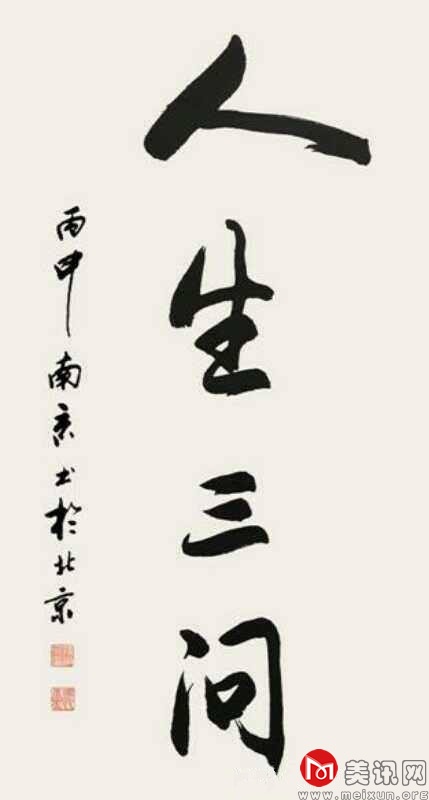 人生三问
丙申 南京 书于北京
美讯网
www.meixun.org